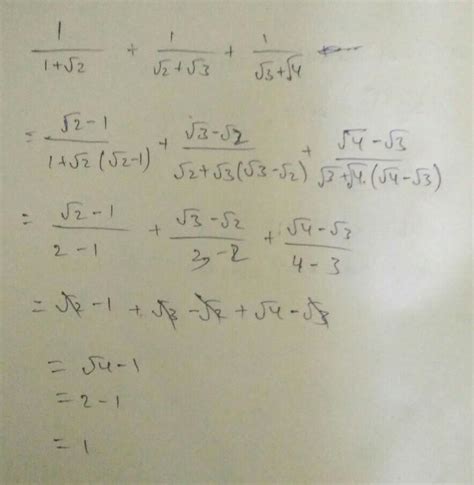 1/(1+√2) + 1/(√2+√3) + 1/(√3+√4)
= (√2-1)/(1+√2(√2-1)) + (√3-√2)/(√2+√3(√3-√2)) + (√4-√3)/(√3+√4.(√4-√3))
= (√2-1)/(2-1) + (√3-√2)/(3-2) + (√4-√3)/(4-3)
= √2-1 + √3-√2 + √4-√3
= √4-1
= 2-1
= 1